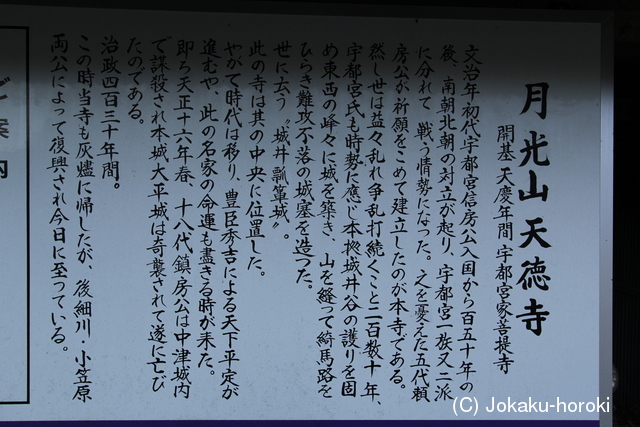 月光山 天徳寺
開基 天慶年間 宇都宮家菩提寺
文治年初代宇都宮信房公入国から百五十年の
後、南朝北朝の対立が起り、宇都宮一族又二派
に分れて戦う情勢になった。之を憂えた五代頼
房公が祈願をこめて建立したのが本寺である。
然し世は益々乱れ争乱打続くこと二百数十年、
宇都宮氏も時勢に應じ本拠城井谷の護りを固
め東西の峰々に城を築き、山を縫って綺馬路を
ひらき難攻不落の城塞を造った。
世に云う〝城井瓢箪城〟。
此の寺は其の中央に位置した。
やがて時代は移り、豊臣秀吉による天下平定が
進むや、此の名家の命運も盡きる時が来た。
即ち天正十六年春、十八代鎮房公は中津城内
で謀殺され本城大平城は奇襲されて遂に亡び
たのである。
治政四百三十年間。
この時当寺も灰燼に帰したが、後細川・小笠原
両公によって復興され今日に至っている。
ご案内
(C) Jokaku-horoki